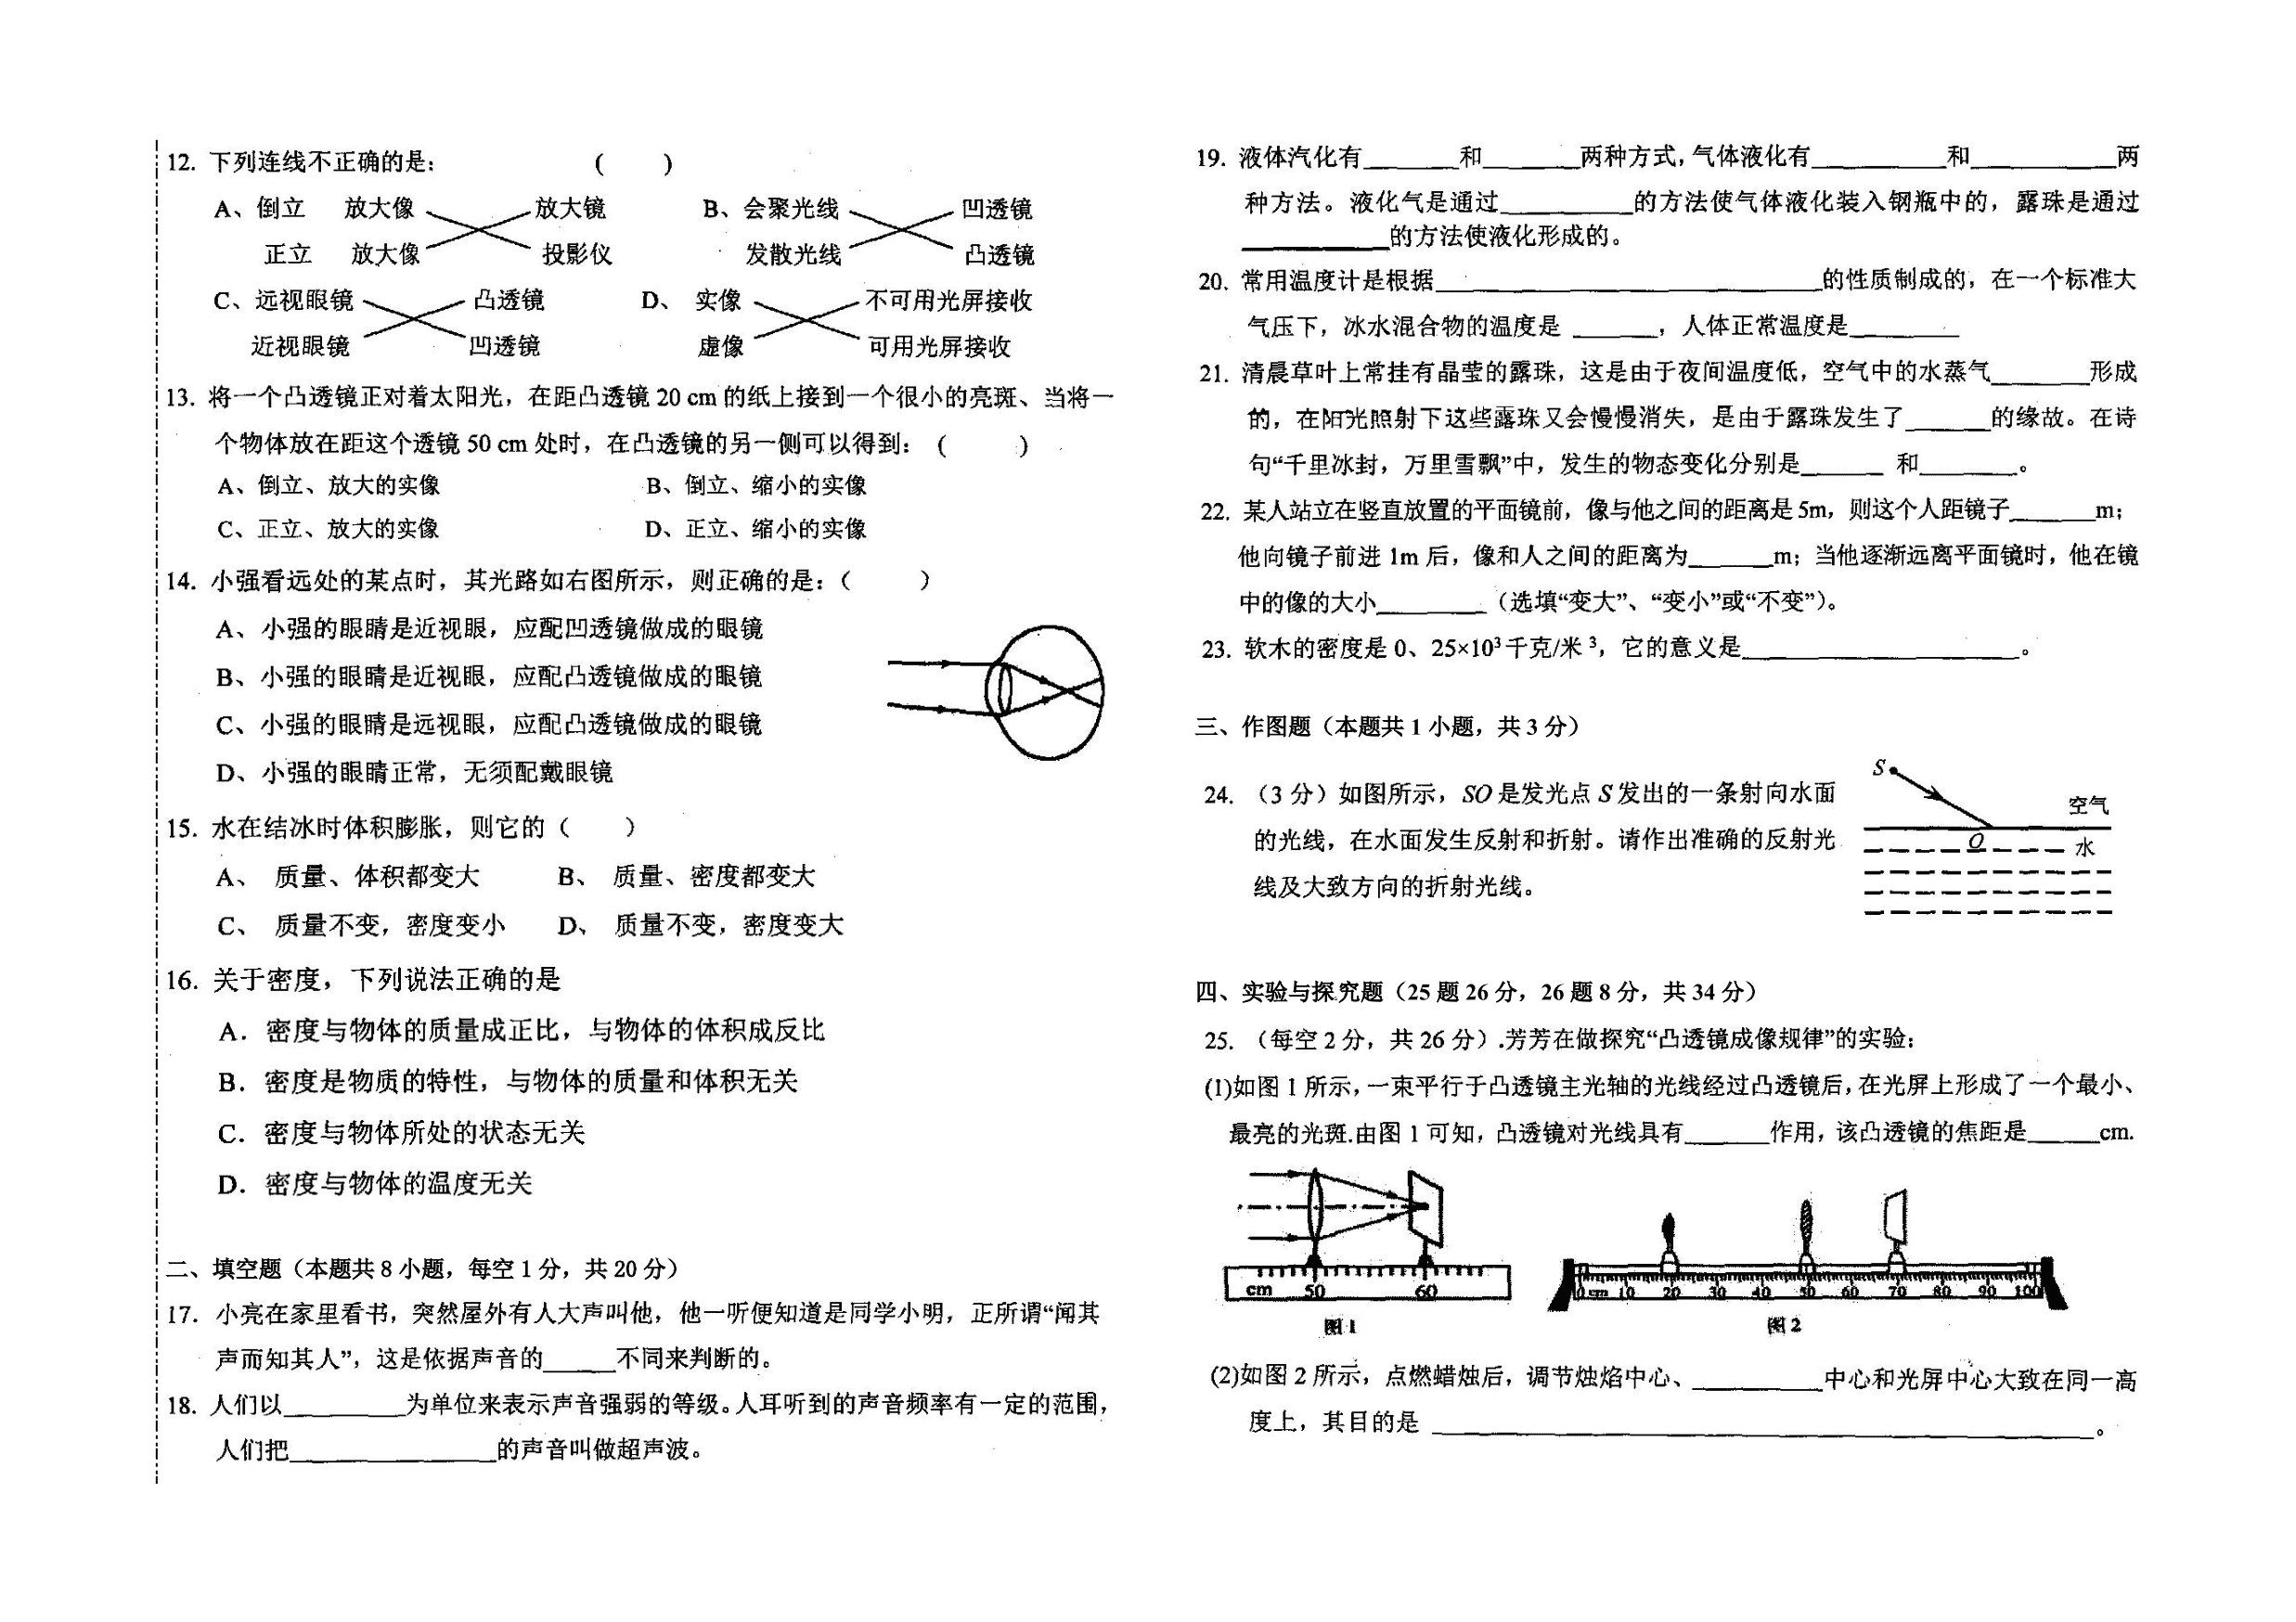 12. 下列连线不正确的是： （ ）
A、倒立 放大像 放大镜 B、会聚光线 凹透镜
正立 放大像 投影仪 发散光线 凸透镜
C、远视眼镜 凸透镜 D、 实像 不可用光屏接收
近视眼镜 凹透镜 虚像 可用光屏接收
13. 将一个凸透镜正对着太阳光，在距凸透镜 20 cm 的纸上接到一个很小的亮斑、当将一
个物体放在距这个透镜 50 cm 处时，在凸透镜的另一侧可以得到：（ ）
A、倒立、放大的实像 B、倒立、缩小的实像
C、正立、放大的实像 D、正立、缩小的实像
14. 小强看远处的某点时，其光路如右图所示，则正确的是：（ ）
A、小强的眼睛是近视眼，应配凹透镜做成的眼镜
B、小强的眼睛是近视眼，应配凸透镜做成的眼镜
C、小强的眼睛是远视眼，应配凸透镜做成的眼镜
D、小强的眼睛正常，无须配戴眼镜
15. 水在结冰时体积膨胀，则它的（ ）
A、 质量、体积都变大 B、 质量、密度都变大
C、 质量不变，密度变小 D、 质量不变，密度变大
16. 关于密度，下列说法正确的是
A．密度与物体的质量成正比，与物体的体积成反比
B．密度是物质的特性，与物体的质量和体积无关
C．密度与物体所处的状态无关
D．密度与物体的温度无关
二、填空题（本题共 8 小题，每空 1 分，共 20 分）
17. 小亮在家里看书，突然屋外有人大声叫他，他一听便知道是同学小明，正所谓“闻其
声而知其人”，这是依据声音的______不同来判断的。
18. 人们以__________为单位来表示声音强弱的等级。人耳听到的声音频率有一定的范围，
人们把_________________的声音叫做超声波。
19. 液体汽化有________和________两种方式，气体液化有___________和____________两
种方法。液化气是通过___________的方法使气体液化装入钢瓶中的，露珠是通过
____________的方法使液化形成的。
20. 常用温度计是根据________________________________的性质制成的，在一个标准大
气压下，冰水混合物的温度是 _______，人体正常温度是_________
21. 清晨草叶上常挂有晶莹的露珠，这是由于夜间温度低，空气中的水蒸气________形成
的，在阳光照射下这些露珠又会慢慢消失，是由于露珠发生了_______的缘故。在诗
句“千里冰封，万里雪飘”中，发生的物态变化分别是_______ 和________。
22. 某人站立在竖直放置的平面镜前，像与他之间的距离是 5m，则这个人距镜子_______m；
他向镜子前进 1m 后，像和人之间的距离为_______m；当他逐渐远离平面镜时，他在镜
中的像的大小_________（选填“变大”、“变小”或“不变”）。
23. 软木的密度是 0、25×10³千克/米 ³，它的意义是_______________________。
三、作图题（本题共 1 小题，共 3 分）
24. （3 分）如图所示，SO 是发光点 S 发出的一条射向水面
的光线，在水面发生反射和折射。请作出准确的反射光
线及大致方向的折射光线。
S
空气
O
水
四、实验与探究题（25 题 26 分，26 题 8 分，共 34 分）
25. （每空 2 分，共 26 分）.芳芳在做探究“凸透镜成像规律”的实验：
(1)如图 1 所示，一束平行于凸透镜主光轴的光线经过凸透镜后，在光屏上形成了一个最小、
最亮的光斑.由图 1 可知，凸透镜对光线具有_______作用，该凸透镜的焦距是______cm.
cm 50 60
图 1
0 cm 10 20 30 40 50 60 70 80 90 100
图 2
(2)如图 2 所示，点燃蜡烛后，调节烛焰中心、___________中心和光屏中心大致在同一高
度上，其目的是 _______________________________________________________。